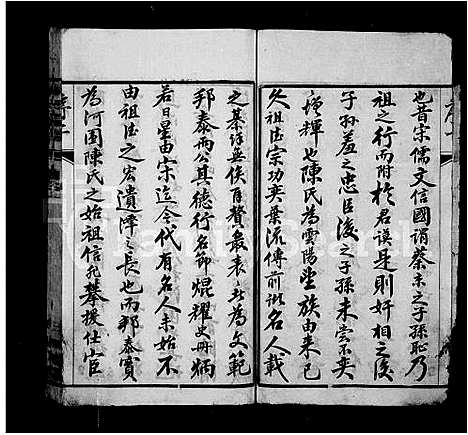 也昔宋儒文信國謂蔡京之子孫恥乃
祖之行而附於君謨是則奸相之後
子孫羞之忠臣後之子孫未嘗不奕
增輝也陳氏為雲陽望族由來已
久祖德宗功奕葉流傳前諸名人載
之綦詳無俟言贅最表者為文範
邦泰兩公其德行名節焜耀史冊炳
若日星由宋迄今代有名人未始不
由祖德之宏遺澤之長也而邦泰實
為河圖陳氏之始祖信non攀援仕宦
序
FamilySearch